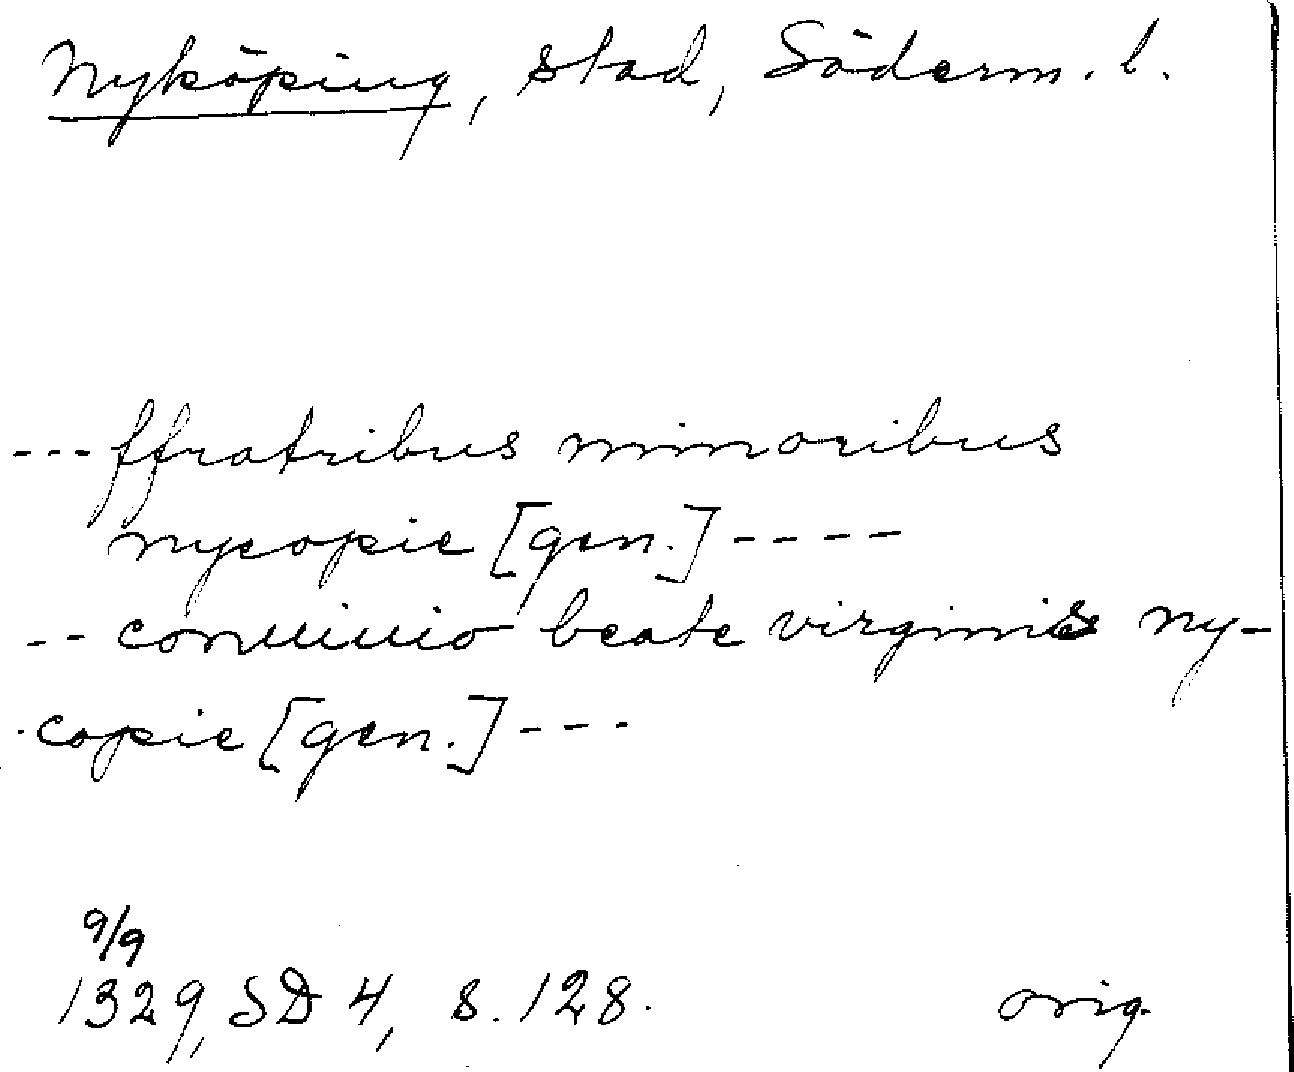 Nyköping, stad, Söderm. l.
--- ffratribus minoribus
nycopie [gen.] ----
-- conuiuio beate virginis ny-
copie [gen.] ---
9/9
1329, SD 4, s. 128.
orig.